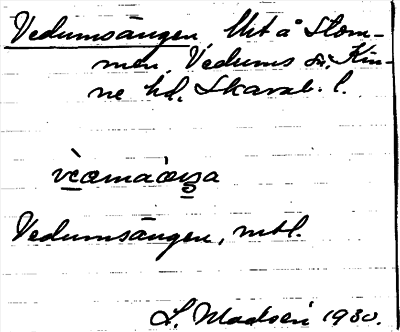 Vedumsängen, Utå Stom-
men, Vedums sn. Kin-
ne hd. Skarab. l.
Vedumsängen, mtl.
L. Madsén 1930.